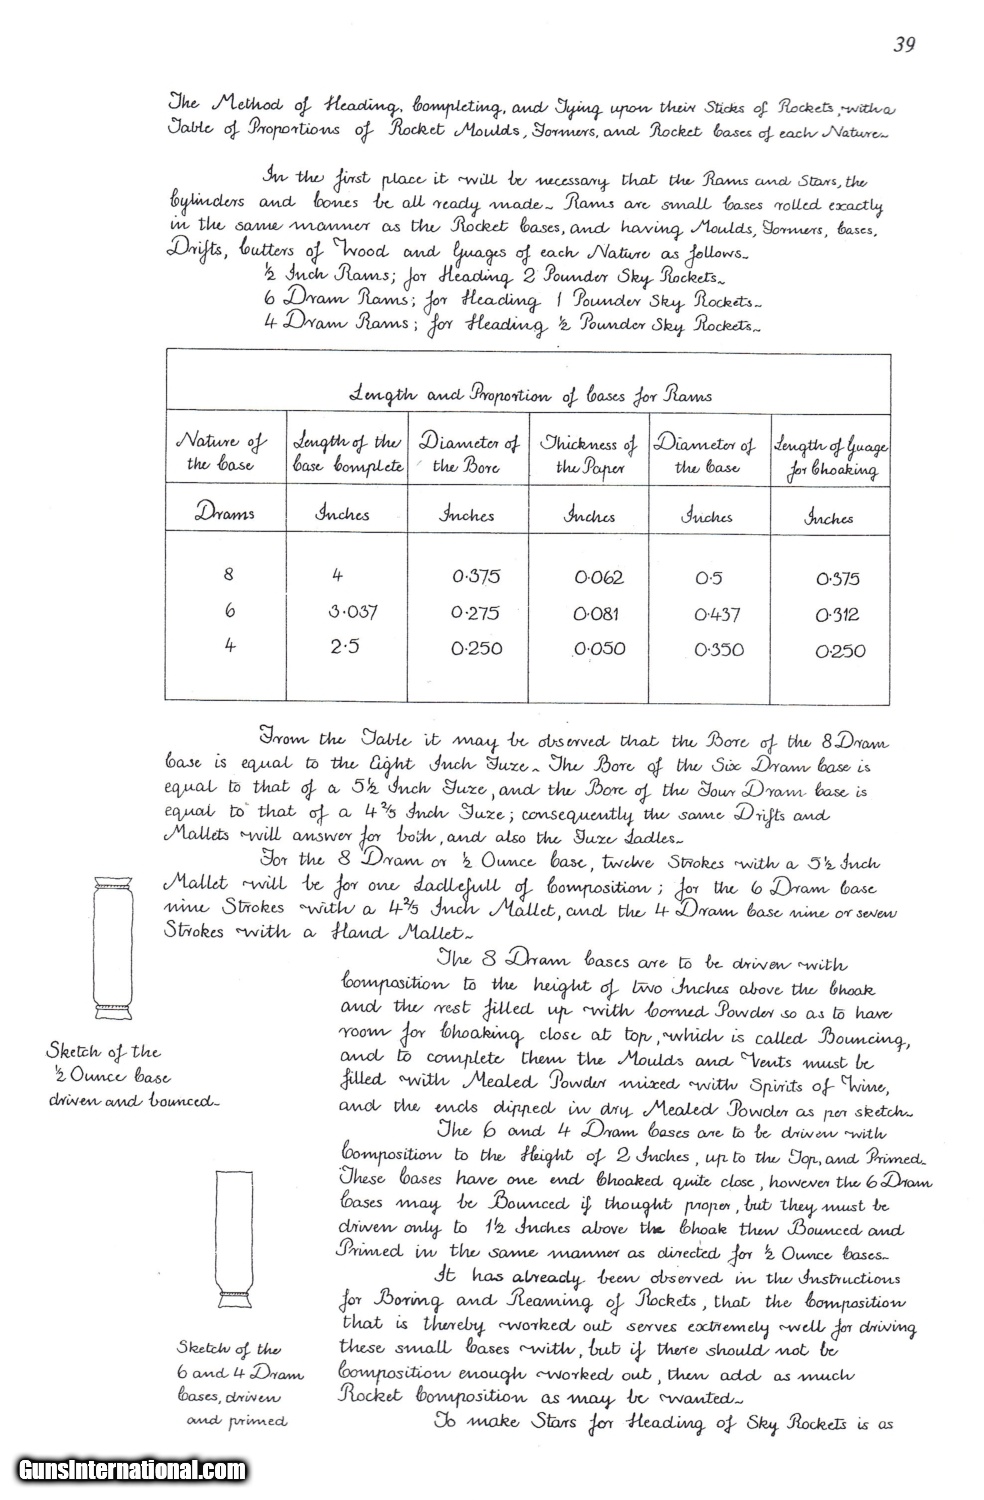 39
The Method of Heading, Completing, and Tying upon their Sticks of Rockets, with a
Table of Proportions of Rocket Moulds, Formers, and Rocket Cases of each Nature~
In the first place it will be necessary that the Rams and Stars, the
Cylinders and Cones be all ready made~ Rams are small Cases rolled exactly
in the same manner as the Rocket Cases, and having Moulds, Formers, Cases,
Drifts, Cutters of Wood and Guages of each Nature as follows~
½ Inch Rams; for Heading 2 Pounder Sky Rockets~
6 Dram Rams; for Heading 1 Pounder Sky Rockets~
4 Dram Rams; for Heading ½ Pounder Sky Rockets~
Length and Proportion of Cases for Rams
Nature of the Case | Length of the Case Complete | Diameter of the Bore | Thickness of the Paper | Diameter of the Case | Length of Guage for Choaking
Drams | Inches | Inches | Inches | Inches | Inches
8 | 4 | 0·375 | 0·062 | 0·5 | 0·375
6 | 3·037 | 0·275 | 0·081 | 0·437 | 0·312
4 | 2·5 | 0·250 | 0·050 | 0·350 | 0·250
From the Table it may be observed that the Bore of the 8 Dram
Case is equal to the Eight Inch Fuze~ The Bore of the Six Dram Case is
equal to that of a 5½ Inch Fuze, and the Bore of the Four Dram Case is
equal to that of a 4⅖ Inch Fuze; consequently the same Drifts and
Mallets will answer for both, and also the Fuze Ladles~
For the 8 Dram or ½ Ounce Case, twelve Strokes with a 5½ Inch
Mallet will be for one Ladlefull of Composition; for the 6 Dram Case
nine Strokes with a 4⅖ Inch Mallet, and the 4 Dram Case nine or seven
Strokes with a Hand Mallet~
The 8 Dram Cases are to be driven with
Composition to the height of two Inches above the Choak
and the rest filled up with Corned Powder so as to have
room for Choaking close at top, which is called Bouncing,
and to complete them the Moulds and Vents must be
filled with Mealed Powder mixed with Spirits of Wine,
and the ends dipped in dry Mealed Powder as per sketch~
Sketch of the
½ Ounce Case
driven and bounced~
The 6 and 4 Dram Cases are to be driven with
Composition to the Height of 2 Inches, up to the Top, and Primed~
These Cases have one end Choaked quite close, however the 6 Dram
Cases may be Bounced if thought proper, but they must be
driven only to 1½ Inches above the Choak then Bounced and
Primed in the same manner as directed for ½ Ounce Cases~
It has already been observed in the Instructions
for Boring and Reaming of Rockets, that the Composition
that is thereby worked out serves extremely well for driving
these small Cases with, but if there should not be
Composition enough worked out, then add as much
Rocket Composition as may be wanted~
Sketch of the
6 and 4 Dram
Cases, driven
and primed
To make Stars for Heading of Sky Rockets is as
GunsInternational.com